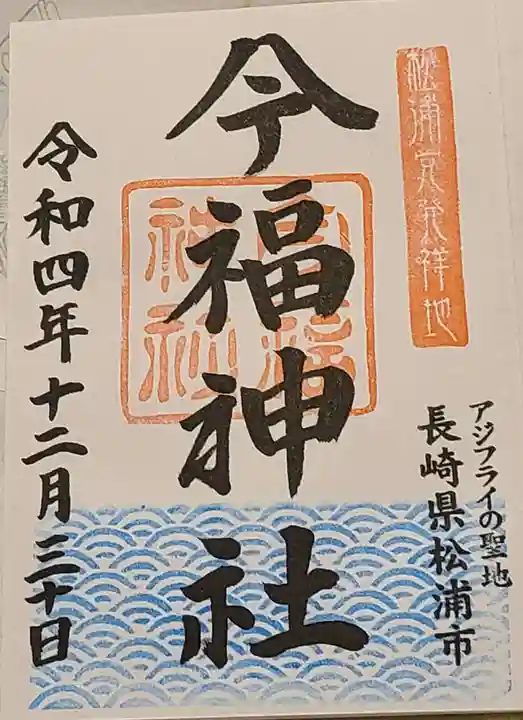 松浦党発祥地
アジフライの聖地
長崎県松浦市
今福神社
令和四年十二月三十日